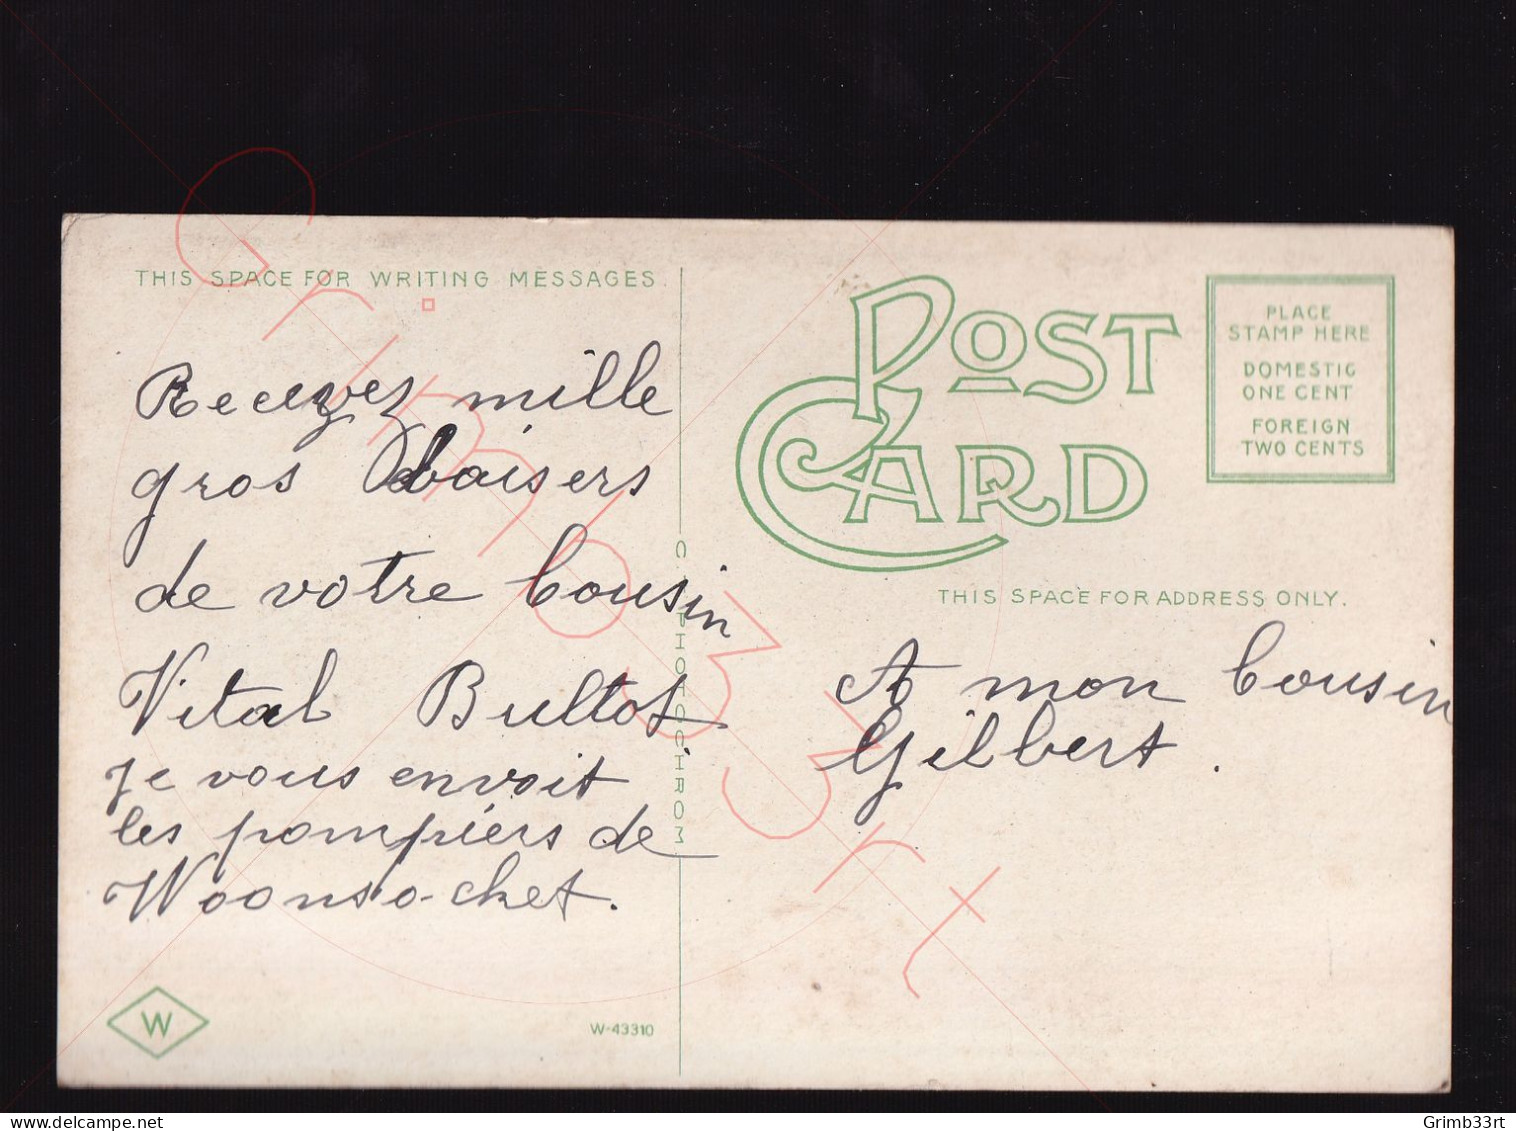 THIS SPACE FOR WRITING MESSAGES
Recevez mille
gros baisers
de votre Cousin
Vital Bultot
je vous envoit
les pompiers de
Woonso-chet.
W
W-43310
C. T. PHOTOCHROM
POST
CARD
PLACE
STAMP HERE
DOMESTIC
ONE CENT
FOREIGN
TWO CENTS
THIS SPACE FOR ADDRESS ONLY.
A mon Cousin
Gilbert.
Grimb33rt
delcampe.net
Grimb33rt